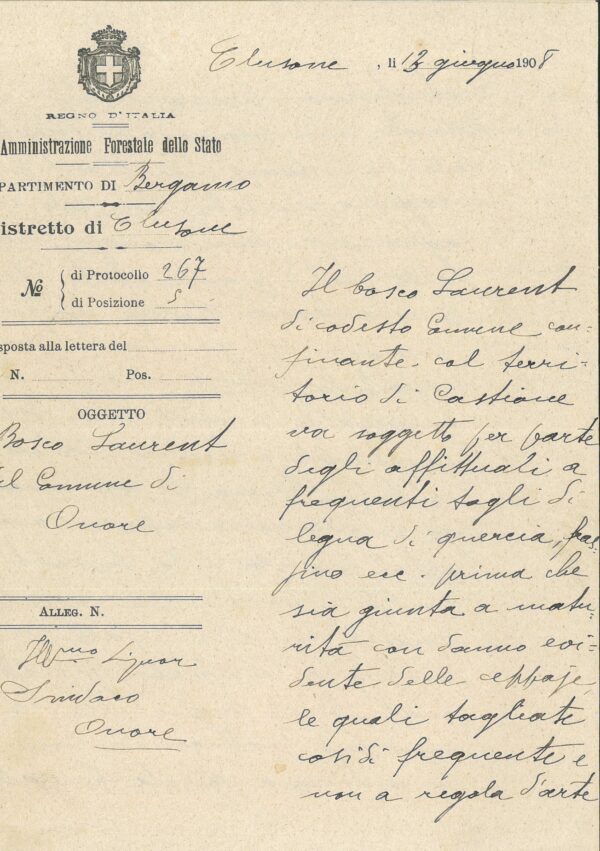 Clusone, li 13 giugno 1908
REGNO D'ITALIA
Amministrazione Forestale dello Stato
PARTIMENTO DI Bergamo
istretto di Clusone
No di Protocollo 267
di Posizione 5
sposta alla lettera del
N. Pos.
OGGETTO
Bosco Laurent
del Comune di
Onore
ALLEG. N.
Ill.mo Signor
Sindaco
Onore
Il bosco Laurent
di codesto Comune con-
finante col terri-
torio di Castione
va soggetto per parte
degli affittuali a
frequenti tagli di
legna di quercia, fras-
sino ecc. prima che
sia giunta a matu-
rità con danno evi-
dente delle ceppaje,
le quali tagliate
così di frequente e
non a regola d'arte